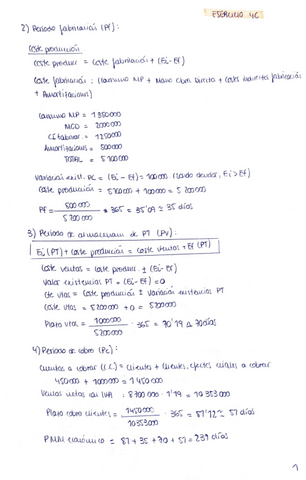 EJERCICIO 4C
2) Periodo fabricación (Pf):
Coste producción
Coste produc = Coste fabricación + (Ei - Ef)
Coste fabricación: (Consumo MP + Mano Obra Directa + Costes Indirectos fabricación
+ Amortizaciones)
Consumo MP = 1950000
MOD = 2000000
= 1250000
Amortizaciones = 500000
TOTAL = 5 100000
Variación exist. PC = (Ei - Ef) = 100000 (saldo deudor, Ei > Ef)
Coste producción = + 100000 = 5 200000
Pf = 500000 / 5 200000 · 365 = 35'09 ≈ 35 días
3) Periodo de almacenam. de PT (Pv):
Ei (PT) + Coste producción = Coste ventas + Ef (PT)
Coste ventas = Coste produc. ± (Ei - Ef)
Valor existencias PT = (Ei - Ef) = 0
Cte vtas = Coste producción ± Variación existencias PT
Coste vtas = 5200000 + 0 = 5200000
Plazo vtas = 1000000 / 5200000 · 365 = 70'19 ≈ 70 días
4) Periodo de cobro (Pc):
Cuentas a cobrar (C.C.) = Clientes + Clientes, efectos ciales a cobrar
450000 + 1000000 = 1 450000
Ventas netas con IVA: 8700 000 · 1'19 = 10 353 000
Plazo cobro clientes = 1450000 / 10353000 · 365 = 51 días
PMM económico = 87 + 35 + 70 + 51 = 239 días
1